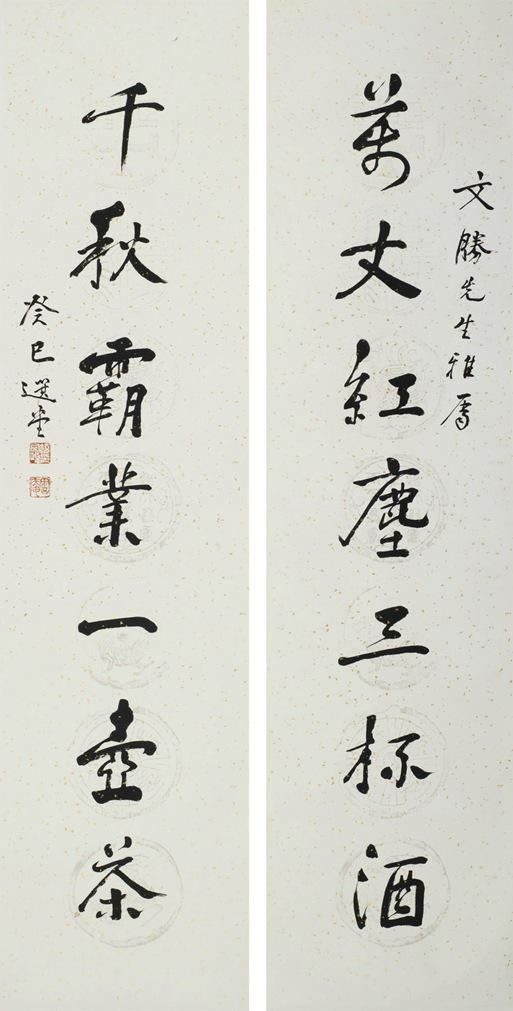 文勝先生雅屬
萬丈紅塵三杯酒
千秋霸業一壺茶
癸巳選堂